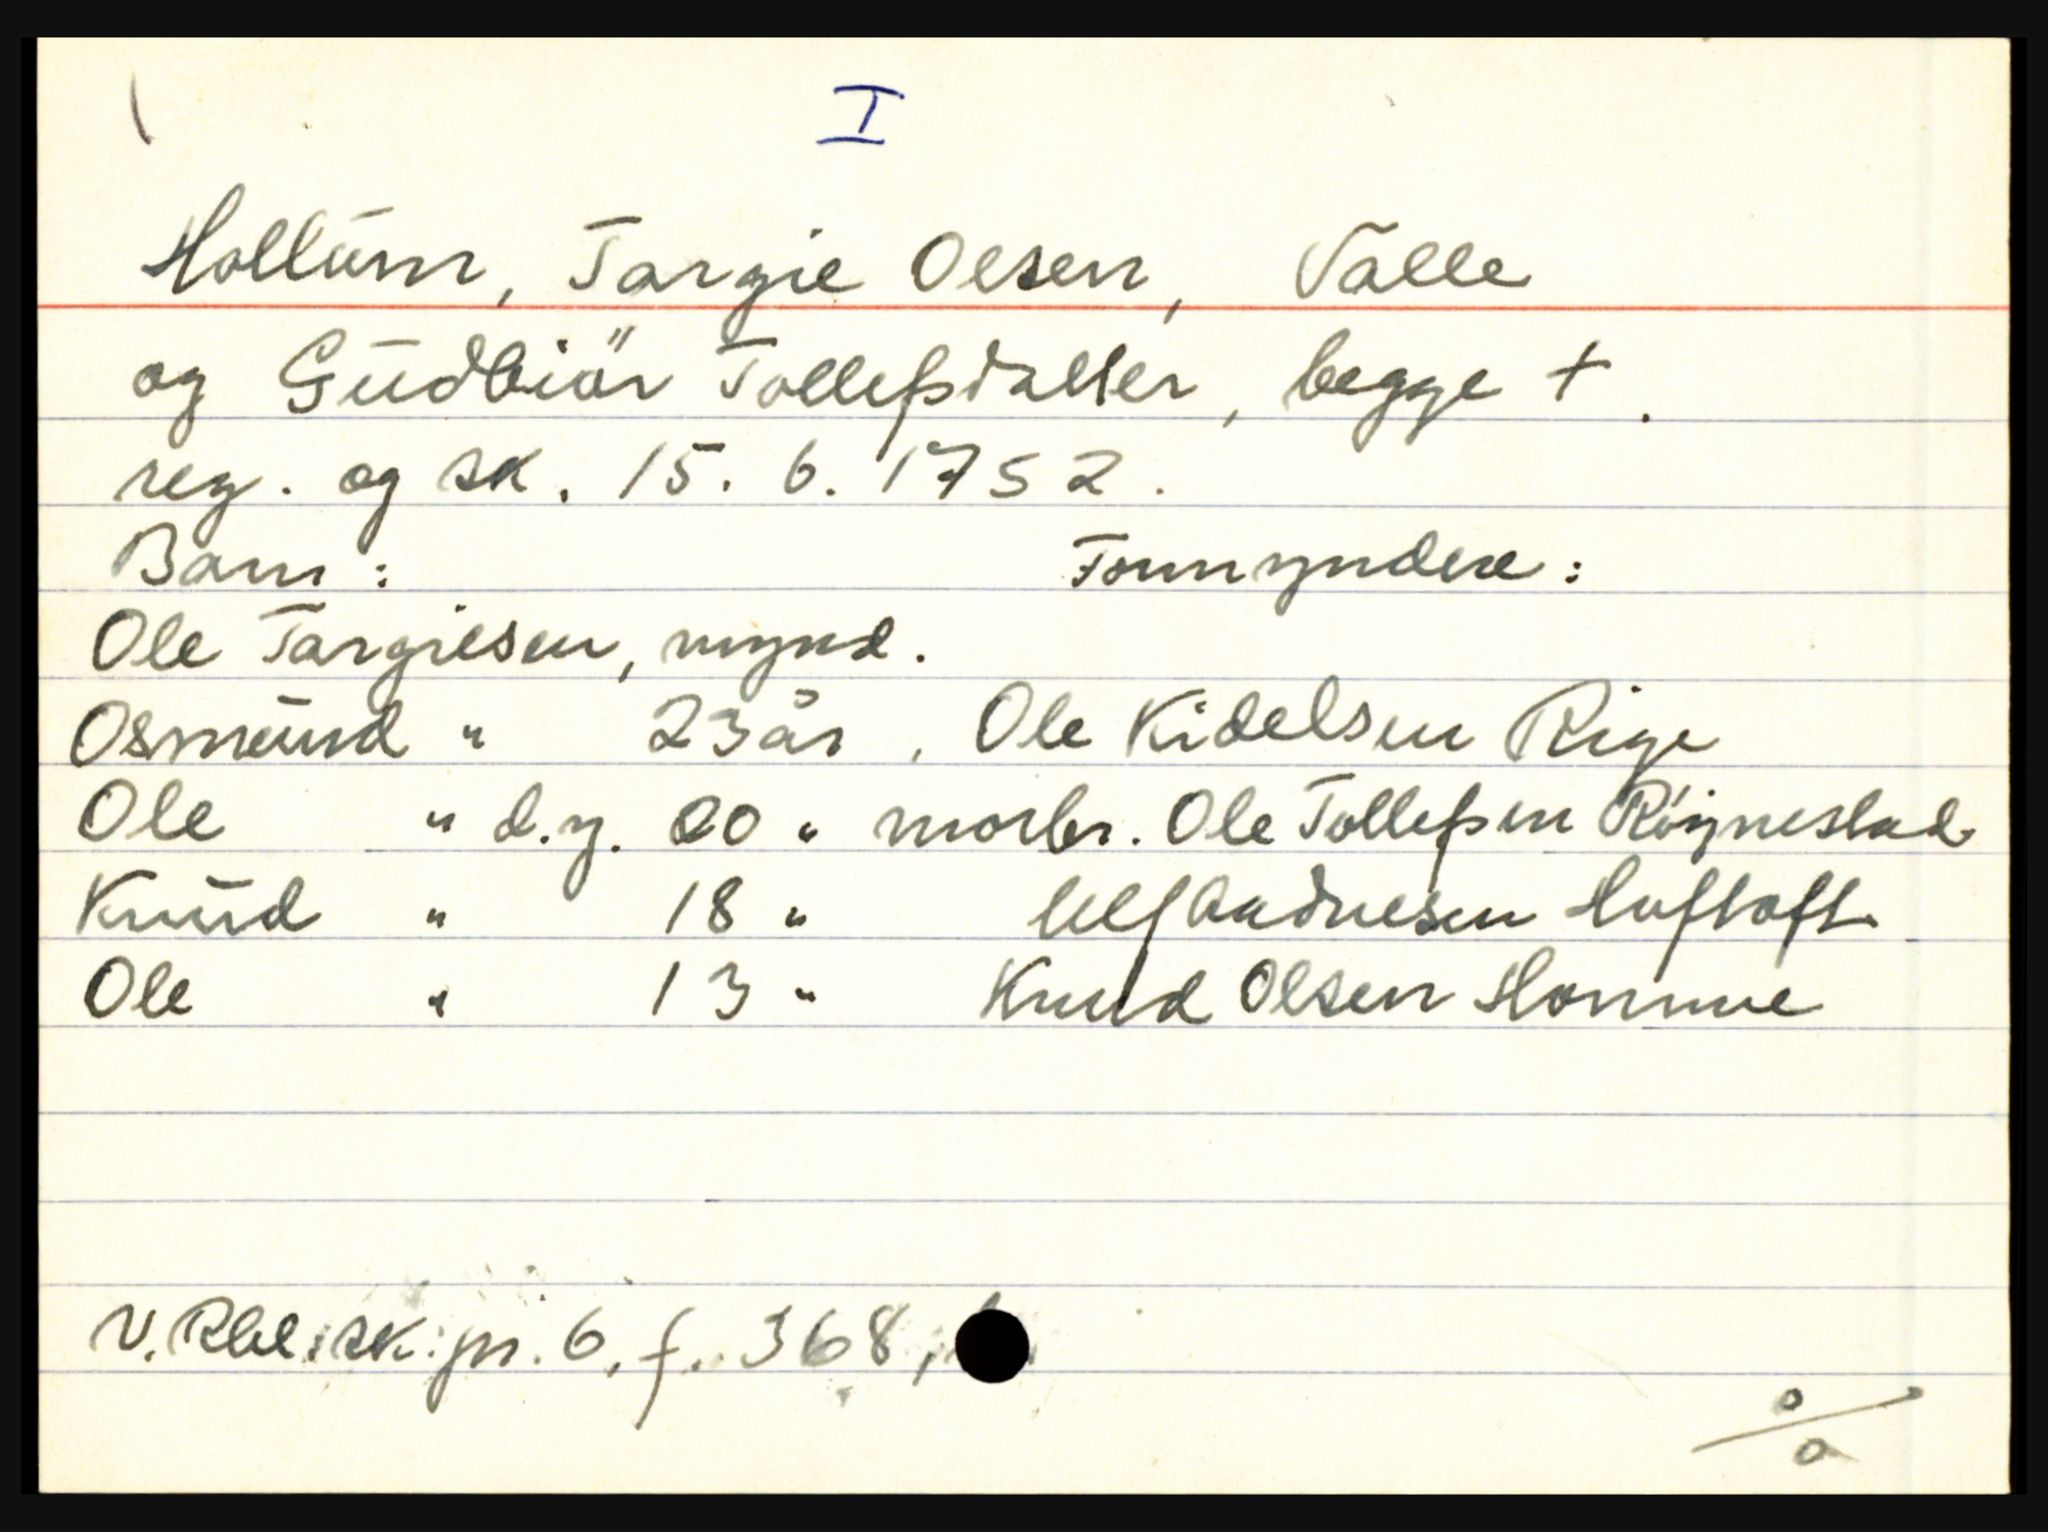 I
Hollum, Targie Olsen, Valle
og Gudbiör Tollefsdatter, begge †.
reg. og sk. 15. 6. 1752.
Barn: Formyndere:
Ole Targiesen, mynd.
Osmund " 23 år, Ole Kidelsen Rige
Ole " d.y. 20 " morbr. Ole Tollefsen Röynestad
Knud " 18 " Ulf Aadnesen Hoftoft
Ole " 13 " Knud Olsen Homme
V. Rbl. sk. pr. 6, f. 368,